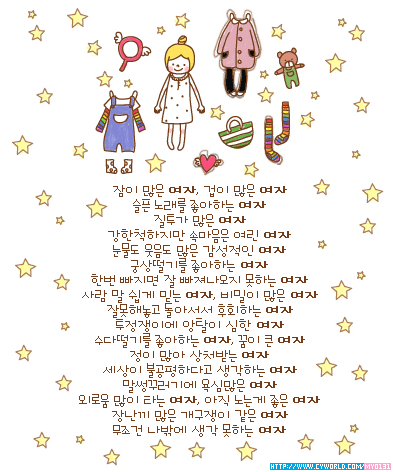 잠이 많은 여자, 겁이 많은 여자
슬픈 노래를 좋아하는 여자
질투가 많은 여자
강한척하지만 속마음은 여린 여자
눈물도 웃음도 많은 감성적인 여자
궁상떨기를 좋아하는 여자
한번 빠지면 잘 빠져나오지 못하는 여자
사람 말 쉽게 믿는 여자, 비밀이 많은 여자
잘못해놓고 돌아서서 후회하는 여자
투정쟁이에 앙탈이 심한 여자
수다떨기를 좋아하는 여자, 꿈이 큰 여자
정이 많아 상처받는 여자
세상이 불공평하다고 생각하는 여자
말썽꾸러기에 욕심많은 여자
외로움 많이 타는 여자, 아직 노는게 좋은 여자
장난끼 많은 개구쟁이 같은 여자
무조건 나밖에 생각 못하는 여자
HTTP://WWW.CYWORLD.COM/MYO131